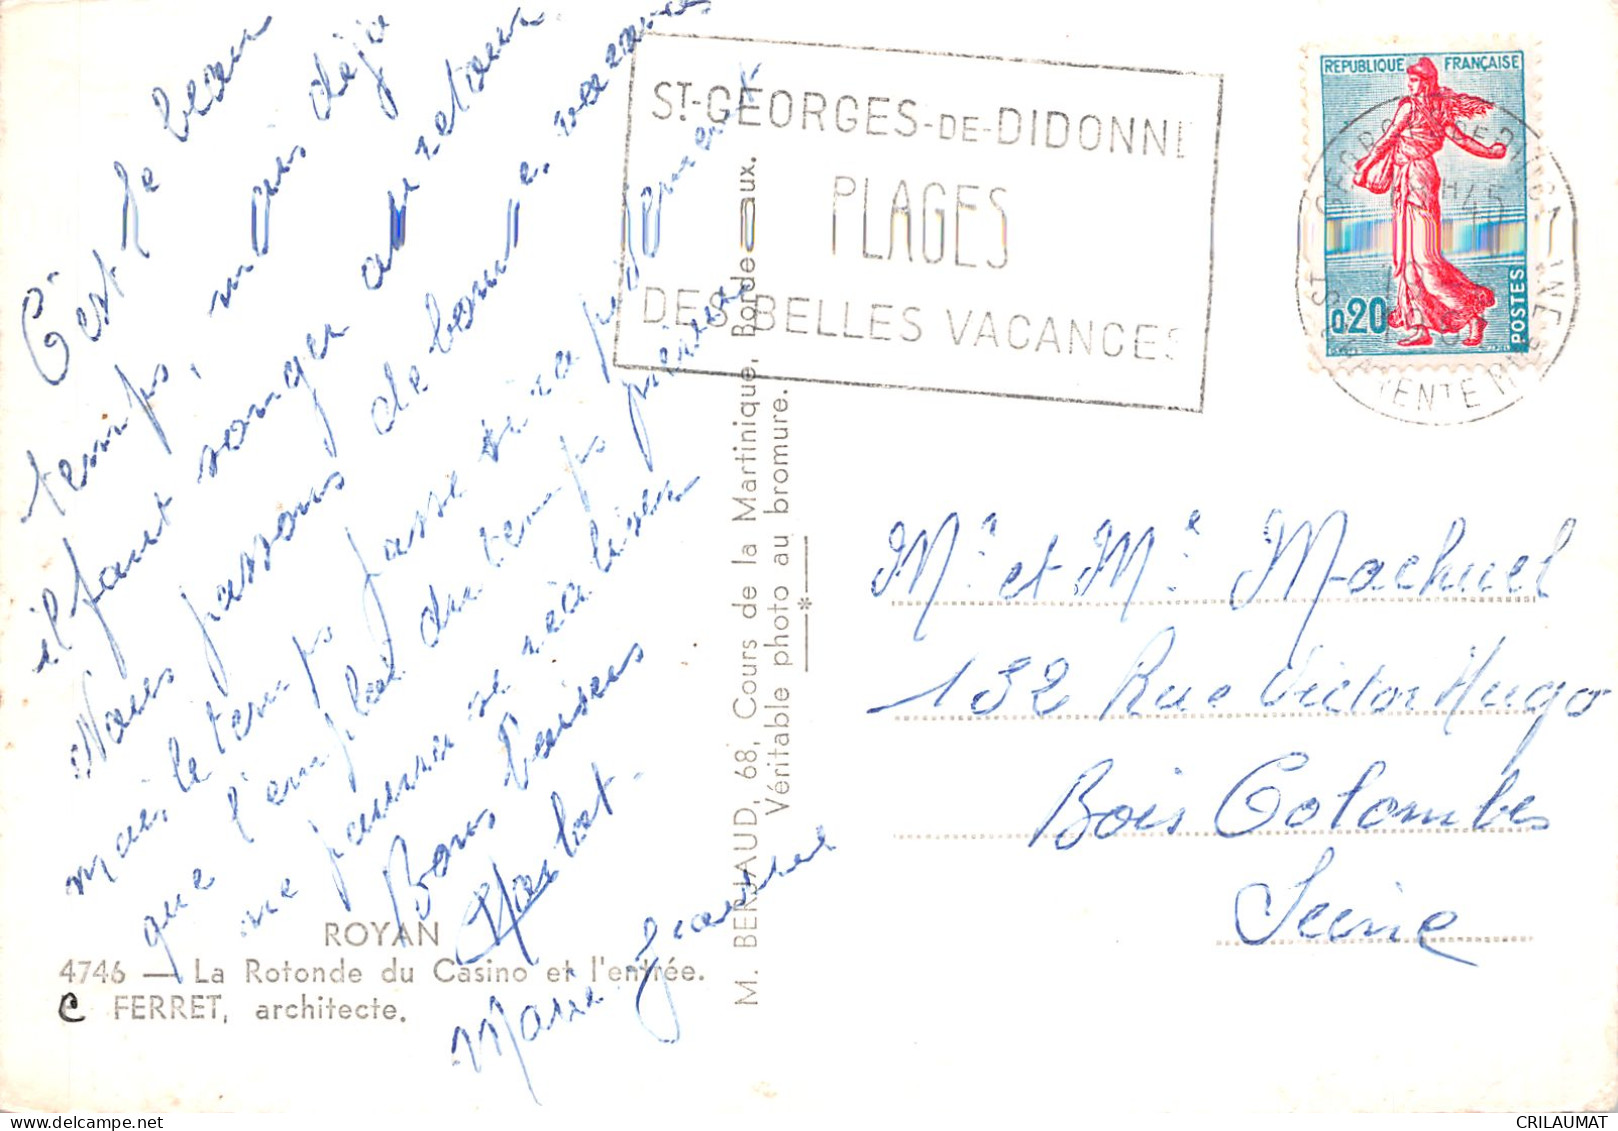 C'est le beau
temps, mais déjà
il faut songer au retour
Nous passons de bonnes vacances
mais le temps passe si rapidement
que l'emploi du temps prévu
ne pourra se réaliser
Bons baisers
Marie Jeanne
ROYAN
4746 — La Rotonde du Casino et l'entrée.
C FERRET, architecte.
M. BERJAUD, 68, Cours de la Martinique, Bordeaux.
Véritable photo au bromure.
ST-GEORGES-DE-DIDONNE
PLAGES
DES BELLES VACANCES
REPUBLIQUE FRANÇAISE
0,20
POSTES
Mr et Me Machuel
132 Rue Victor Hugo
Bois Colombes
Seine
CRILAUMAT